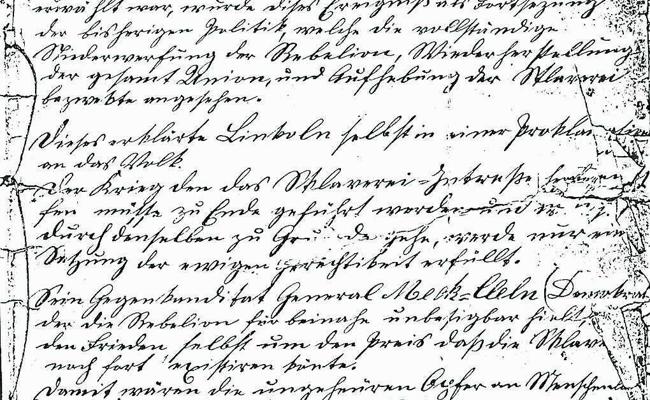 erwählt war, wurde dieses Ereigniß als Fortsezung
der bisherigen Politik, welche die vollständige
Niederwerfung der Rebelion, Wiederherstellung
der gesamt Union, und Aufhebung der Sklaverei
bezwekte angesehen.
Dieses erklärte Linkoln selbst in einer Prokla
an das Volk.
Der Krieg den das Sklaverei-Intreße
fen müsse zu Ende geführt werden und
durch denselben zu Gru de gehe, werde nur ein
Satzung der ewigen Gerechtikeit erfüllt.
Sein Gegenkanditat General Meck-Cleln (Demokrat
der die Rebelion für beinahe unbesigbar hielt,
den Frieden selbst um den Preis daß die Sklav
noch fort existiren könte.
Damit wären die ungeheuren Opfer an Menschenle